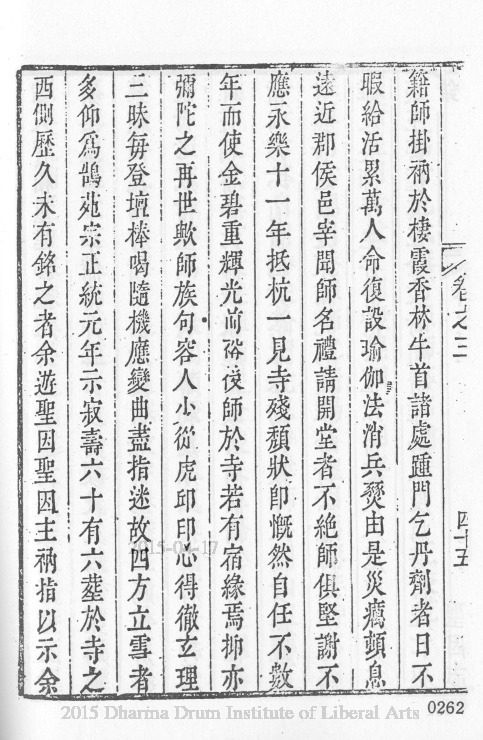 籍師掛衲於棲霞香林牛首諸處踵門乞丹劑者日不
暇給活累萬人命復設瑜伽法消兵燹由是災癘頓息
遠近郡侯邑宰聞師名禮請開堂者不絶師俱堅謝不
應永樂十一年抵杭一見寺殘頽狀卽慨然自任不數
年而使金碧重輝光前裕後師於寺若有宿緣焉抑亦
彌陀之再世歟師族句容人少從虎邱印心得徹玄理
三昧每登壇棒喝隨機應變曲盡指迷故四方立雪者
多仰爲鵠苑宗正統元年示寂壽六十有六塟於寺之
西側歷久未有銘之者余遊聖因聖因主衲指以示余
卷之三
四十五
0262
2015-04-17
2015 Dharma Drum Institute of Liberal Arts